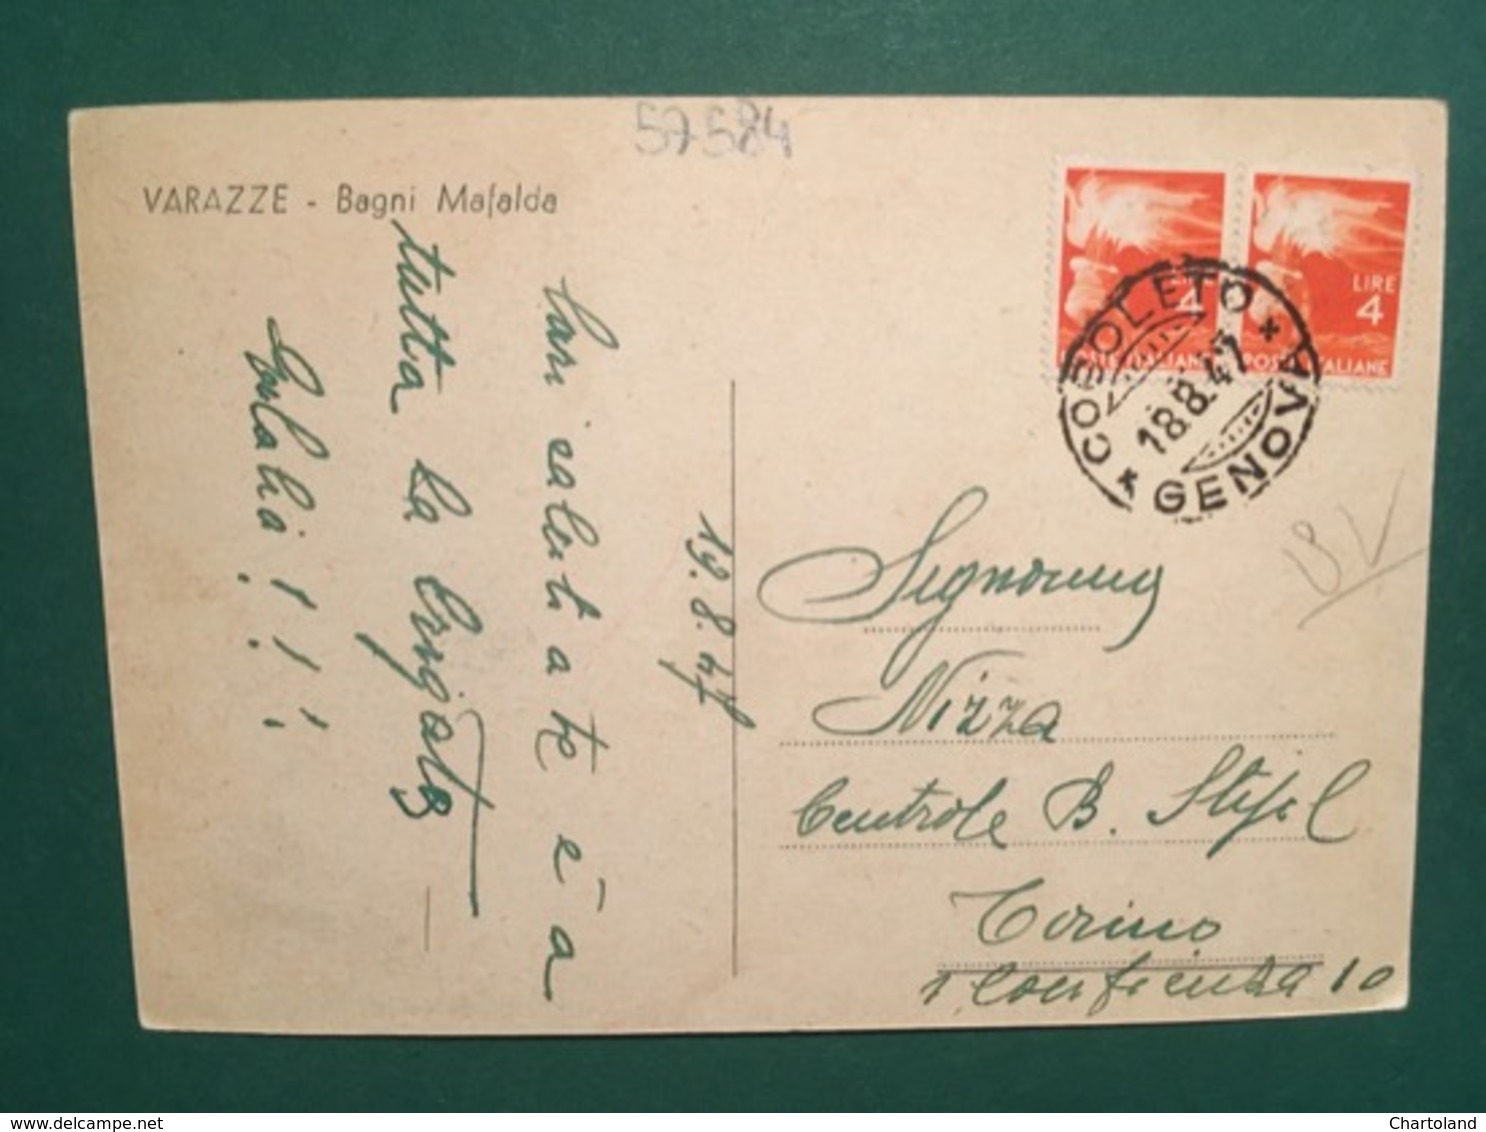 57584
VARAZZE - Bagni Mafalda
LIRE
4
POSTE ITALIANE
LIRE
4
POSTE ITALIANE
COGOLETO
18.8.47
GENOVA
19.8.47
Cari saluti a te e a
tutta la brigata
Eulalia!!!
Signorina
Nizza
Centrale B. Stipel
Torino
Confienza 10
www.delcampe.net
Chartoland